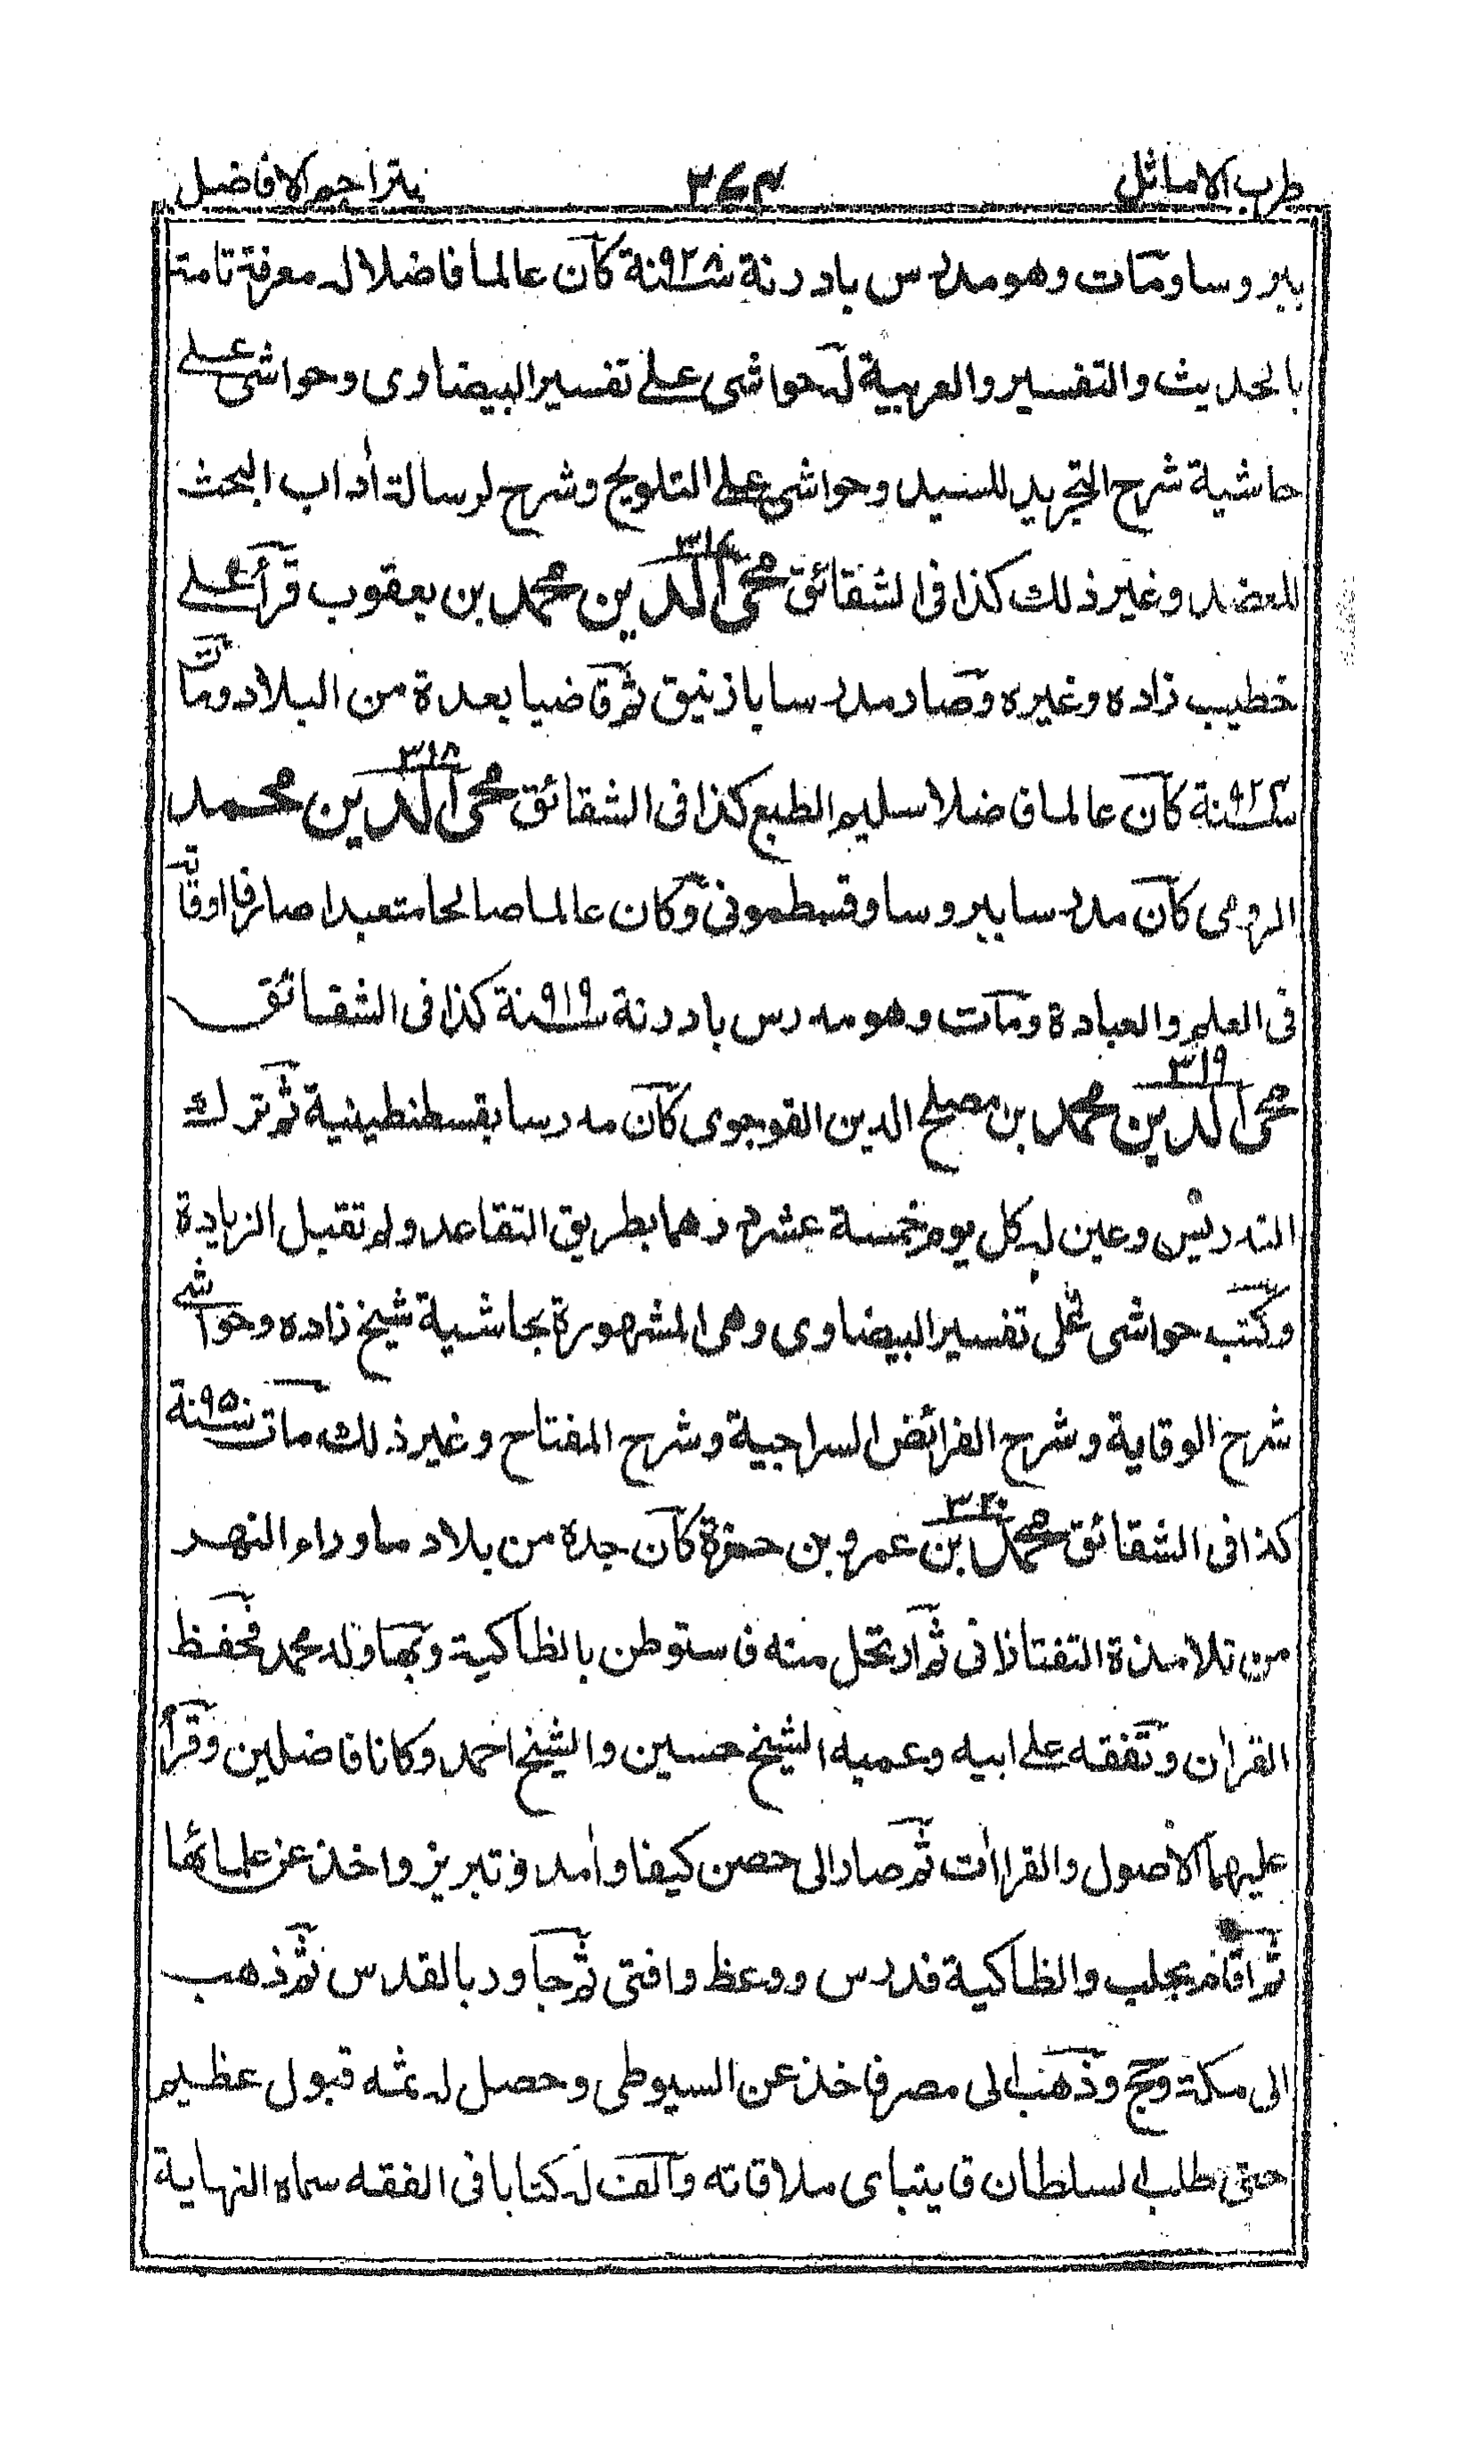 طرب الاماثل ٣٧٤ بتراجم الافاضل
ببروسا ومات وهو مدرس بادرنة سنة ٩٢٨ كان عالما فاضلا له معرفة تامة
بالحديث والتفسير والعربية له حواشى على تفسير البيضاوى وحواشى على
حاشية شرح التجريد للسيد وحواشى على التلويح وشرح لرسالة اداب البحث
للعضد وغير ذلك كذا فى الشقائق ٣١٧ محى الدين محمد بن يعقوب قرأ على
خطيب زاده وغيره وصار مدرسا بازنيق ثم قاضيا بعدة من البلاد ومات
سنة ٩٢٤ كان عالما فاضلا سليم الطبع كذا فى الشقائق ٣١٨ محى الدين محمد
الرومى كان مدرسا ببروسا وقسطمونى وكان عالما صالحا متعبدا صارفا اوقاته
فى العلم والعبادة ومات وهو مدرس بادرنة سنة ٩١٩ كذا فى الشقائق
٣١٩ محى الدين محمد بن مصلح الدين القوجوى كان مدرسا بقسطنطينية ثم ترك
التدريس وعين له كل يوم خمسة عشر درهما بطريق التقاعد ولم تقبل الزيادة
وكتب حواشى على تفسير البيضاوى وهى المشهورة بحاشية شيخ زاده وحواشى
شرح الوقاية وشرح الفرائض السراجية وشرح المفتاح وغير ذلك مات سنة ٩٥٠
كذا فى الشقائق ٣٢٠ محمد بن عمرو بن حمزة كان جده من بلاد ماوراء النهر
من تلامذة التفتازانى ثم ارتحل منه فاستوطن بانطاكية وبها ولد محمد فحفظ
القران وتفقه على ابيه وعميه الشيخ حسين والشيخ احمد وكانا فاضلين وقرأ
عليهما الاصول والقراأت ثم صار الى حصن كيفا وأمد وتبريز واخذ عن علمائها
ثم اقام بحلب وانطاكية فدرس ووعظ وافتى ثم جاور بالقدس ثم ذهب
الى مكة وحج وذهب الى مصر فاخذ عن السيوطى وحصل له ثمه قبول عظيم
حتى طلب السلطان قايتباى ملاقاته وألف له كتابا فى الفقه سماه النهاية